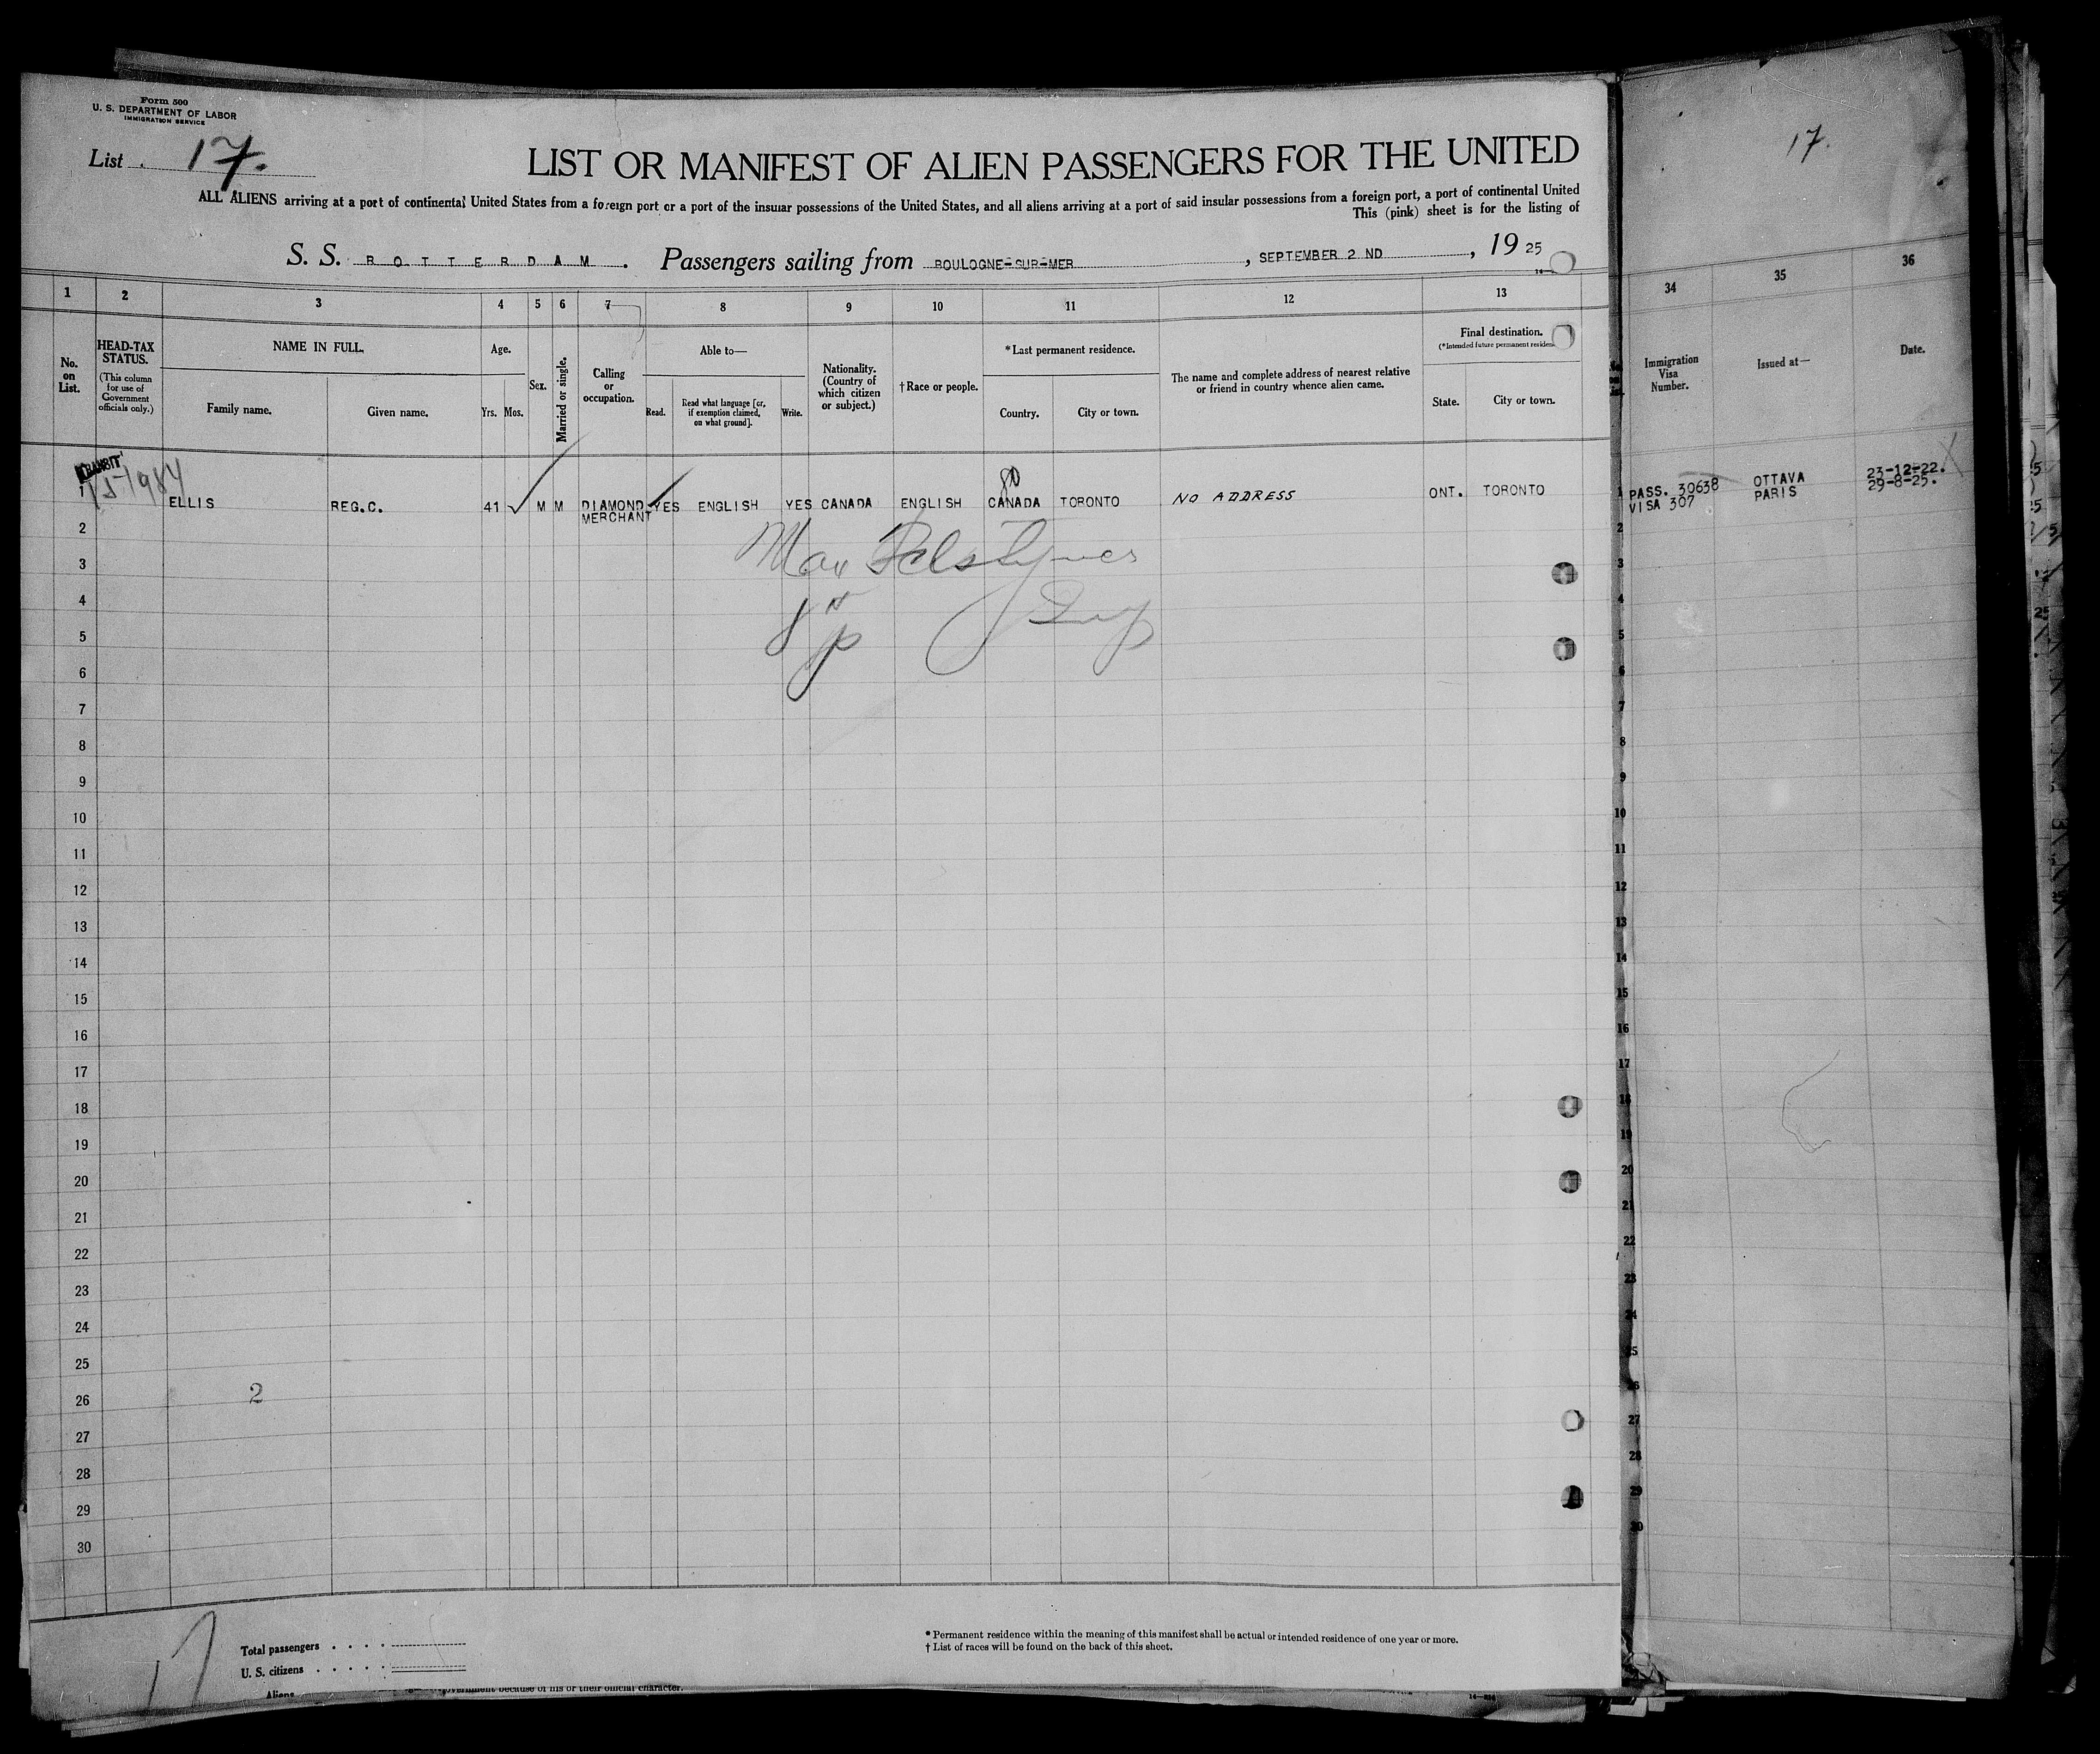 Form 500
U. S. DEPARTMENT OF LABOR
IMMIGRATION SERVICE
List 17.
LIST OR MANIFEST OF ALIEN PASSENGERS FOR THE UNITED
ALL ALIENS arriving at a port of continental United States from a foreign port or a port of the insular possessions of the United States, and all aliens arriving at a port of said insular possessions from a foreign port, a port of continental United
This (pink) sheet is for the listing of
S. S. ROTTERDAM. Passengers sailing from BOULOGNE-SUR-MER, SEPTEMBER 2 ND, 19 25
1 2 3 4 5 6 7 8 9 10 11 12 13
No. on List.
HEAD-TAX STATUS.
(This column for use of Government officials only.)
NAME IN FULL.
Family name. Given name.
Age.
Yrs. Mos.
Sex.
Married or single.
Calling or occupation.
Able to—
Read. Read what language [or, if exemption claimed, on what ground]. Write.
Nationality. (Country of which citizen or subject.)
†Race or people.
*Last permanent residence.
Country. City or town.
The name and complete address of nearest relative or friend in country whence alien came.
Final destination.
(*Intended future permanent residence
State. City or town.
TRANSIT
1 ELLIS REG.C. 41 M M DIAMOND MERCHANT YES ENGLISH YES CANADA ENGLISH CANADA TORONTO NO ADDRESS ONT. TORONTO
2
3
4
5
6
7
8
9
10
11
12
13
14
15
16
17
18
19
20
21
22
23
24
25
26 2
27
28
29
30
17
Total passengers
U. S. citizens
Aliens
* Permanent residence within the meaning of this manifest shall be actual or intended residence of one year or more.
† List of races will be found on the back of this sheet.
government because of his or their official character.
17.
34 35 36
Immigration Visa Number.
Issued at—
Date.
1 PASS. 30638 OTTAVA 23-12-22.
VISA 307 PARIS 29-8-25.
2
3
4
5
6
7
8
9
10
11
12
13
14
15
16
17
18
19
20
21
22
23
24
25
26
27
28
29
30